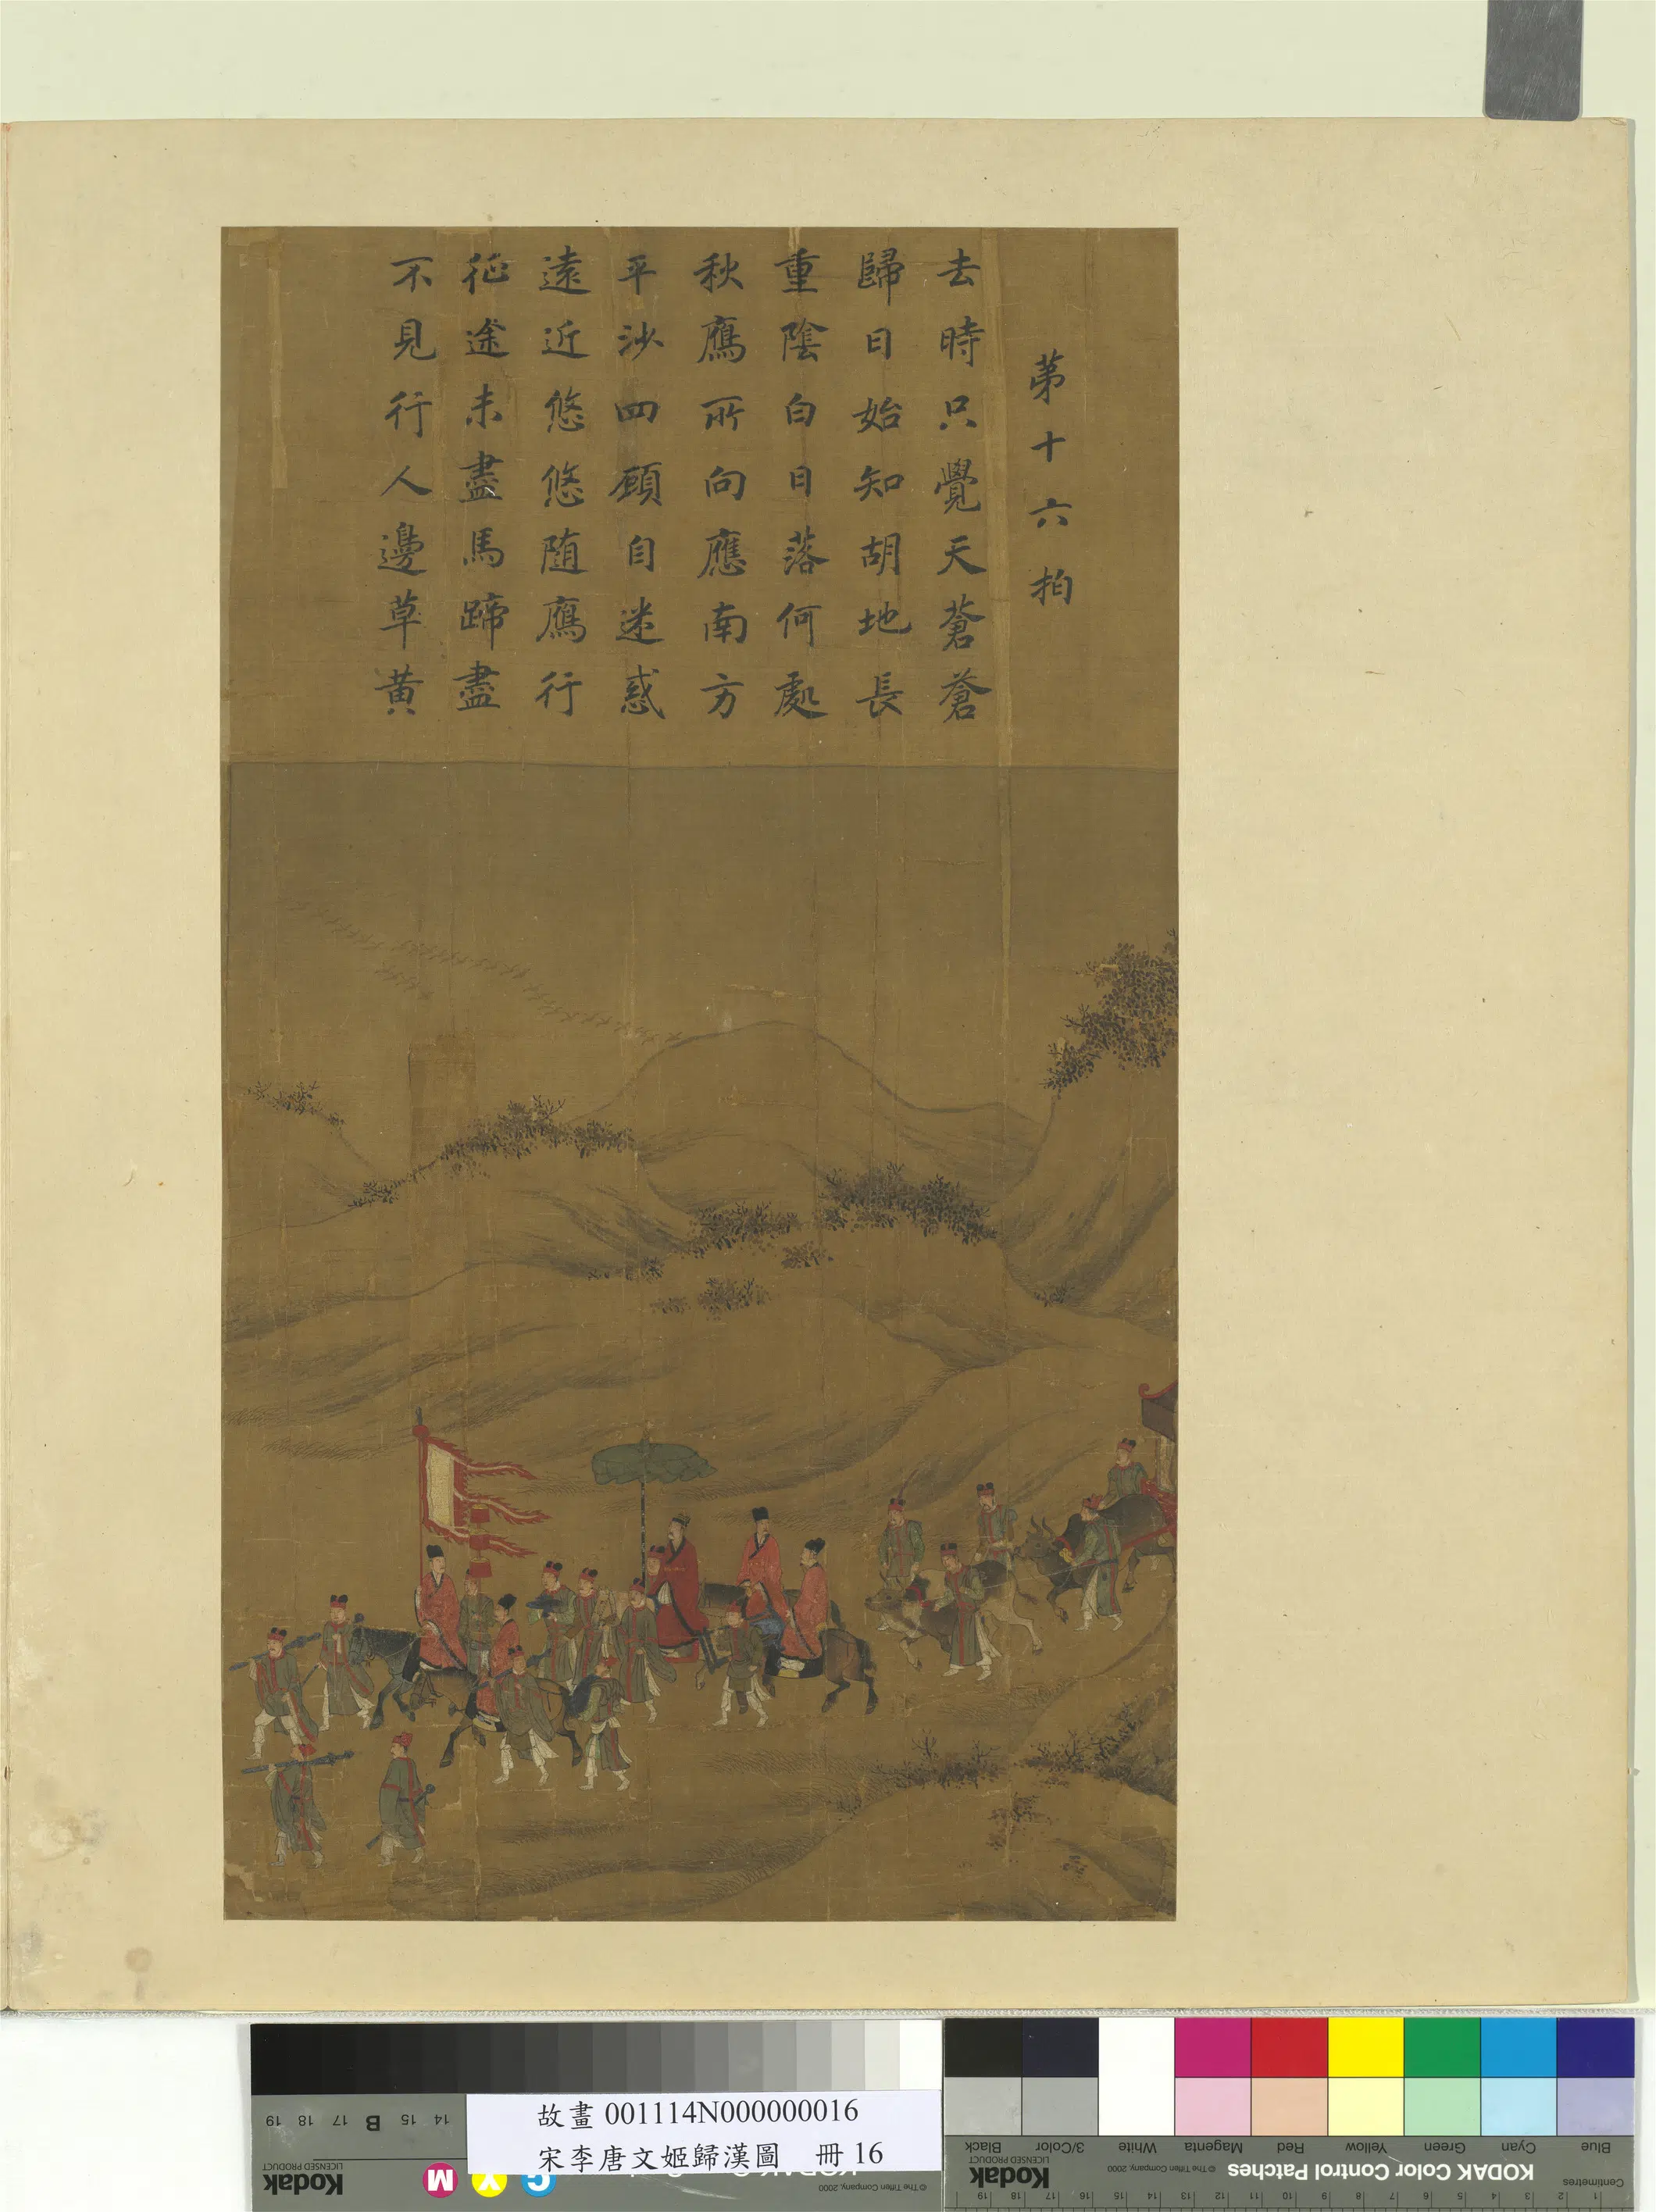 第十六拍
去時只覺天蒼蒼
歸日始知胡地長
重陰白日落何處
秋鴈所向應南方
平沙四顧自迷惑
遠近悠悠随鴈行
征途未盡馬蹄盡
不見行人邊草黃
故畫 001114N000000016
宋李唐文姬歸漢圖 冊 16
KODAK Color Control Patches
Blue Cyan Green Yellow Red Magenta White 3/Color Black
Kodak
LICENSED PRODUCT
© The Tiffen Company, 2000
Centimetres
1 2 3 4 5 6 7 8 9 10 11 12 13 14 15 16 17 18 19
Kodak
LICENSED PRODUCT
© The Tiffen Company, 2000
C Y M
14 15 B 17 18 19